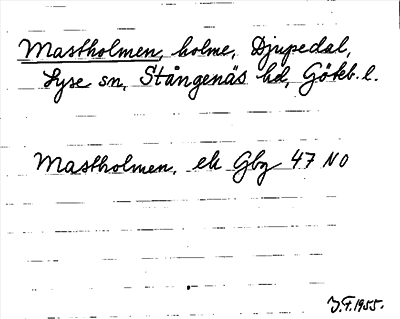 Mastholmen, holme, Djupedal,
Lyse sn, Stångenäs hd, Götéb. l.
Mastholmen, ek Gbg 47 NO
J.F. 1955.